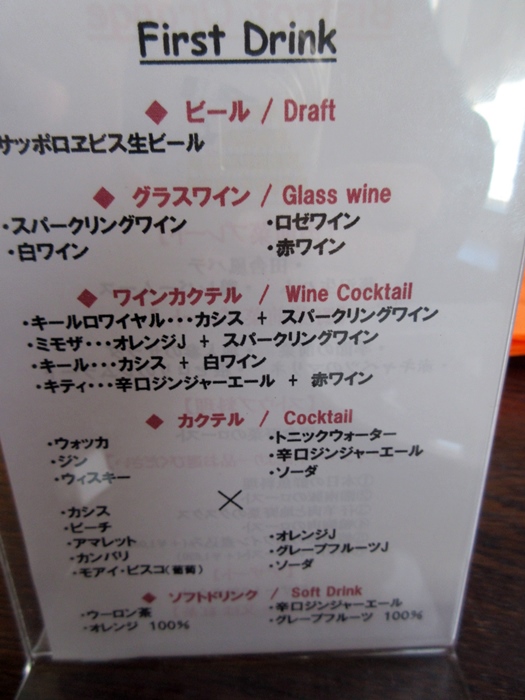 First Drink
◆ ビール / Draft
サッポロヱビス生ビール
◆ グラスワイン / Glass wine
・スパークリングワイン ・ロゼワイン
・白ワイン ・赤ワイン
◆ ワインカクテル / Wine Cocktail
・キールロワイヤル・・・カシス + スパークリングワイン
・ミモザ・・・オレンジJ + スパークリングワイン
・キール・・・カシス + 白ワイン
・キティ・・・辛口ジンジャーエール + 赤ワイン
◆ カクテル / Cocktail
・ウォッカ ・トニックウォーター
・ジン ・辛口ジンジャーエール
・ウィスキー ・ソーダ
×
・カシス
・ピーチ ・オレンジJ
・アマレット ・グレープフルーツJ
・カンパリ ・ソーダ
・モアイ・ピスコ(葡萄)
◆ ソフトドリンク / Soft Drink
・ウーロン茶 ・辛口ジンジャーエール
・オレンジ 100% ・グレープフルーツ 100%